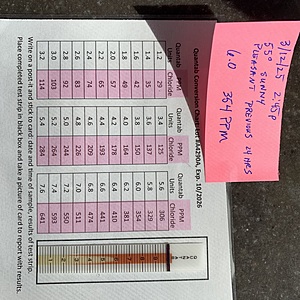 3/12/25 2:45p
55° SUNNY
PLEASANT PREVIOUS 24 HRS
6.0 354 PPM
Quantab Conversion Chart for EA4290A, Exp. 10/2026
Quantab Units PPM Chloride Quantab Units PPM Chloride Quantab Units PPM Chloride
1.2 29 3.4 125 5.6 306
1.4 35 3.6 137 5.8 329
1.6 42 3.8 150 6.0 354
1.8 49 4.0 164 6.2 381
2.0 57 4.2 178 6.4 410
2.2 65 4.4 193 6.6 441
2.4 74 4.6 209 6.8 474
2.6 83 4.8 226 7.0 511
2.8 92 5.0 244 7.2 550
3.0 103 5.2 264 7.4 593
3.2 114 5.4 284 7.6 641
QUANTAB
Write on a post-it and stick to card date and time of sample, results of test strip.
Place completed test strip in black box and take a picture of card to report with results.